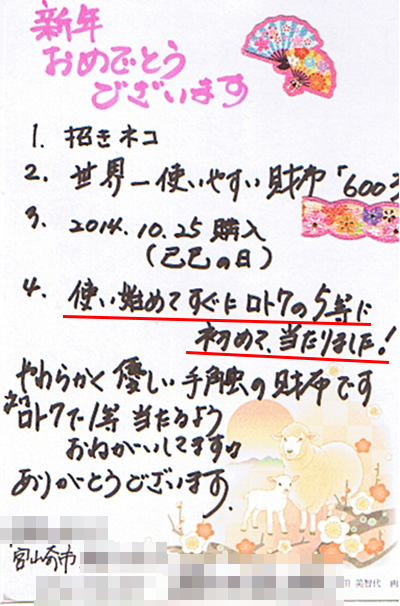 新年
おめでとう
ございます
1. 招きネコ
2. 世界一使いやすい財布「600
3. 2014.10.25 購入
(己巳の日)
4. 使い始めてすぐにロト7の5等に
初めて、当たりました!
やわらかく優しい手触の財布です
ロト7で1等 当たるよう
おねがいしてます
ありがとうございます.
宮崎市
川 美智代 画